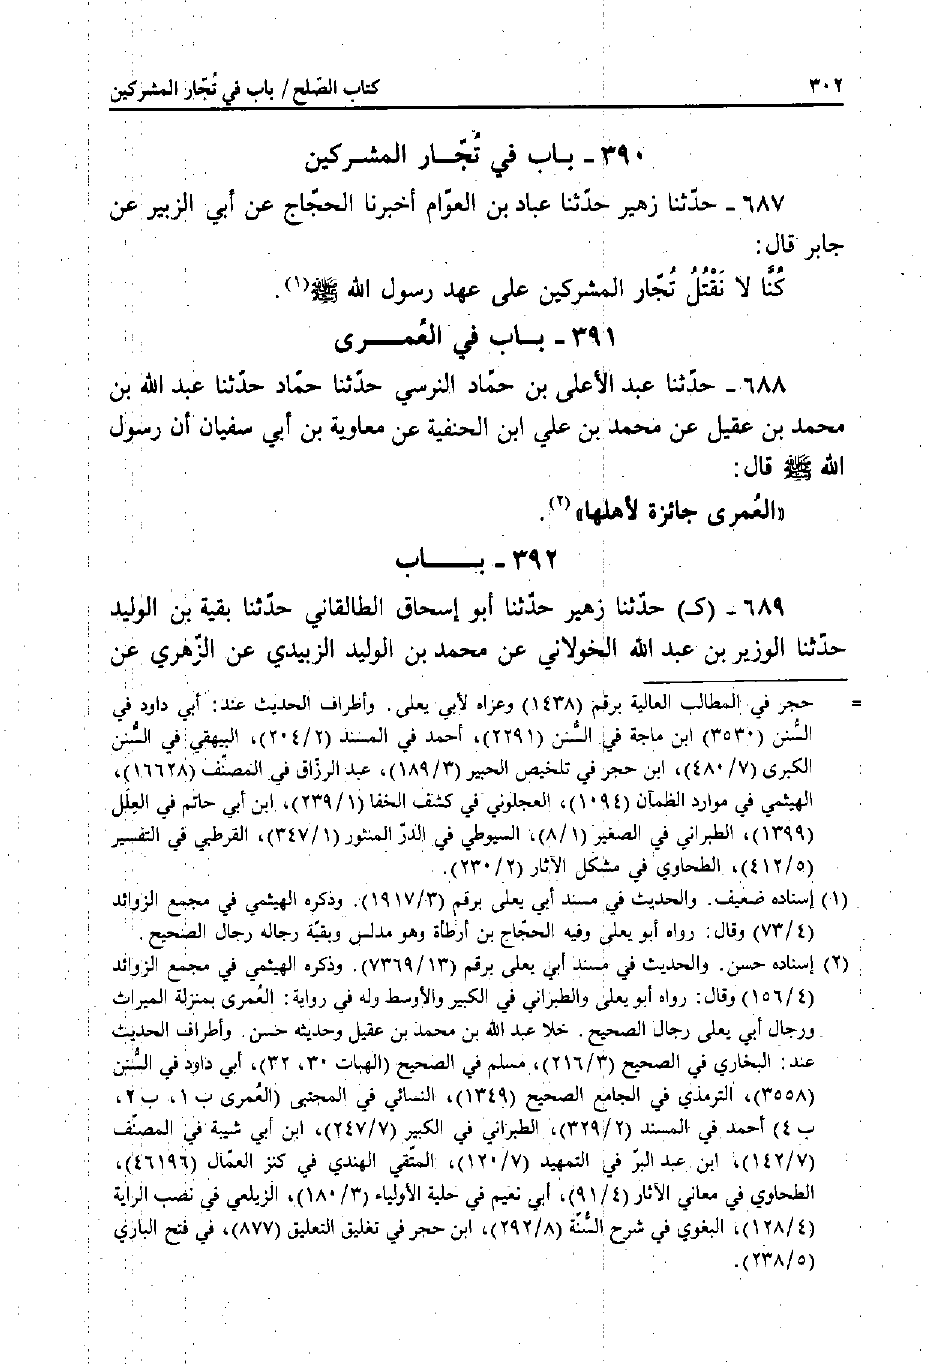 ٣٠٢ كتاب الصّلح / باب في تُجّار المشركين
٣٩٠ ـ بـاب في تُجّـار المشـركين
٦٨٧ ـ حدّثنا زهير حدّثنا عباد بن العوّام أخبرنا الحجّاج عن أبي الزبير عن
جابر قال:
كُنَّا لا نَقْتُلُ تُجّار المشركين على عهد رسول الله ﷺ(١).
٣٩١ ـ بـاب في العُمــرى
٦٨٨ ـ حدّثنا عبد الأعلى بن حمّاد النرسي حدّثنا حمّاد حدّثنا عبد الله بن
محمد بن عقيل عن محمد بن علي ابن الحنفية عن معاوية بن أبي سفيان أن رسول
الله ﷺ قال:
«العُمرى جائزة لأهلها»(٢).
٣٩٢ ـ بــــاب
٦٨٩ ـ (كـ) حدّثنا زهير حدّثنا أبو إسحاق الطالقاني حدّثنا بقية بن الوليد
حدّثنا الوزير بن عبد الله الخولاني عن محمد بن الوليد الزبيدي عن الزّهري عن
= حجر في المطالب العالية برقم (١٤٣٨) وعزاه لأبي يعلى. وأطراف الحديث عند: أبي داود في
السُّنن (٣٥٣٠) ابن ماجة في السُّنن (٢٢٩١)، أحمد في المسند (٢/ ٢٠٤)، البيهقي في السُّنن
الكبرى (٧/ ٤٨٠)، ابن حجر في تلخيص الحبير (٣/ ١٨٩)، عبد الرزّاق في المصنّف (١٦٦٢٨)،
الهيثمي في موارد الظمآن (١٠٩٤)، العجلوني في كشف الخفا (١/ ٢٣٩)، ابن أبي حاتم في العِلَل
(١٣٩٩)، الطبراني في الصغير (١/ ٨)، السيوطي في الدرّ المنثور (١/ ٣٤٧)، القرطبي في التفسير
(٥/ ٤١٢)، الطحاوي في مشكل الآثار (٢/ ٢٣٠).
(١) إسناده ضعيف. والحديث في مسند أبي يعلى برقم (٣/ ١٩١٧). وذكره الهيثمي في مجمع الزوائد
(٤/ ٧٣) وقال: رواه أبو يعلى وفيه الحجّاج بن أرطأة وهو مدلس وبقيّة رجاله رجال الصحيح.
(٢) إسناده حسن. والحديث في مسند أبي يعلى برقم (١٣/ ٧٣٦٩). وذكره الهيثمي في مجمع الزوائد
(٤/ ١٥٦) وقال: رواه أبو يعلى والطبراني في الكبير والأوسط وله في رواية: العُمرى بمنزلة الميراث
ورجال أبي يعلى رجال الصحيح. خلا عبد الله بن محمد بن عقيل وحديثه حسن. وأطراف الحديث
عند: البخاري في الصحيح (٣/ ٢١٦)، مسلم في الصحيح (الهبات ٣٠، ٣٢)، أبي داود في السُّنن
(٣٥٥٨)، الترمذي في الجامع الصحيح (١٣٤٩)، النسائي في المجتبى (العُمرى ب ١، ب ٢،
ب ٤) أحمد في المسند (٢/ ٣٢٩)، الطبراني في الكبير (٧/ ٢٤٧)، ابن أبي شيبة في المصنّف
(٧/ ١٤٢)، ابن عبد البرّ في التمهيد (٧/ ١٢٠)، المتّقي الهندي في كنز العمّال (٤٦١٩٦)،
الطحاوي في معاني الآثار (٤/ ٩١)، أبي نعيم في حلية الأولياء (٣/ ١٨٠)، الزيلعي في نصب الراية
(٤/ ١٢٨)، البغوي في شرح السُّنّة (٨/ ٢٩٢)، ابن حجر في تغليق التعليق (٨٧٧)، في فتح الباري
(٥/ ٢٣٨).